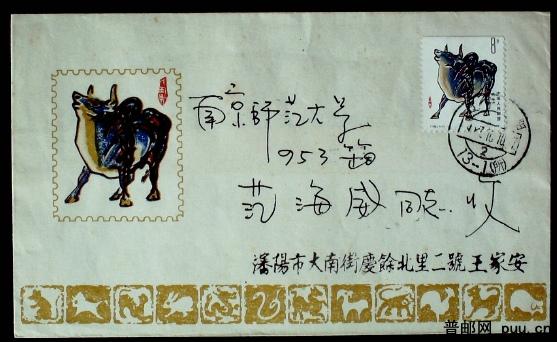 8分
南京師范大学
953箱
范海威同志 收
瀋陽市大南街慶餘北里二號王家安
普邮网 puu.cn